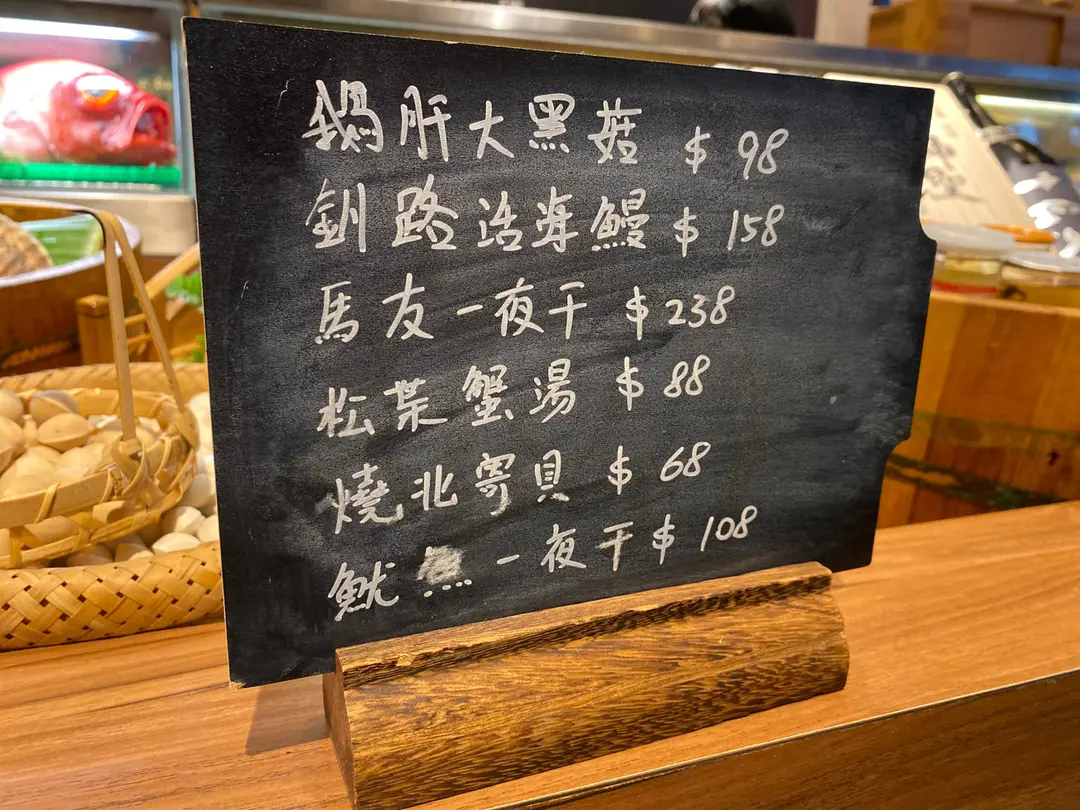 鵝肝大黑菇 $98
釧路活海鰻 $158
馬友一夜干 $238
松葉蟹湯 $88
燒北寄貝 $68
魷魚一夜干 $108